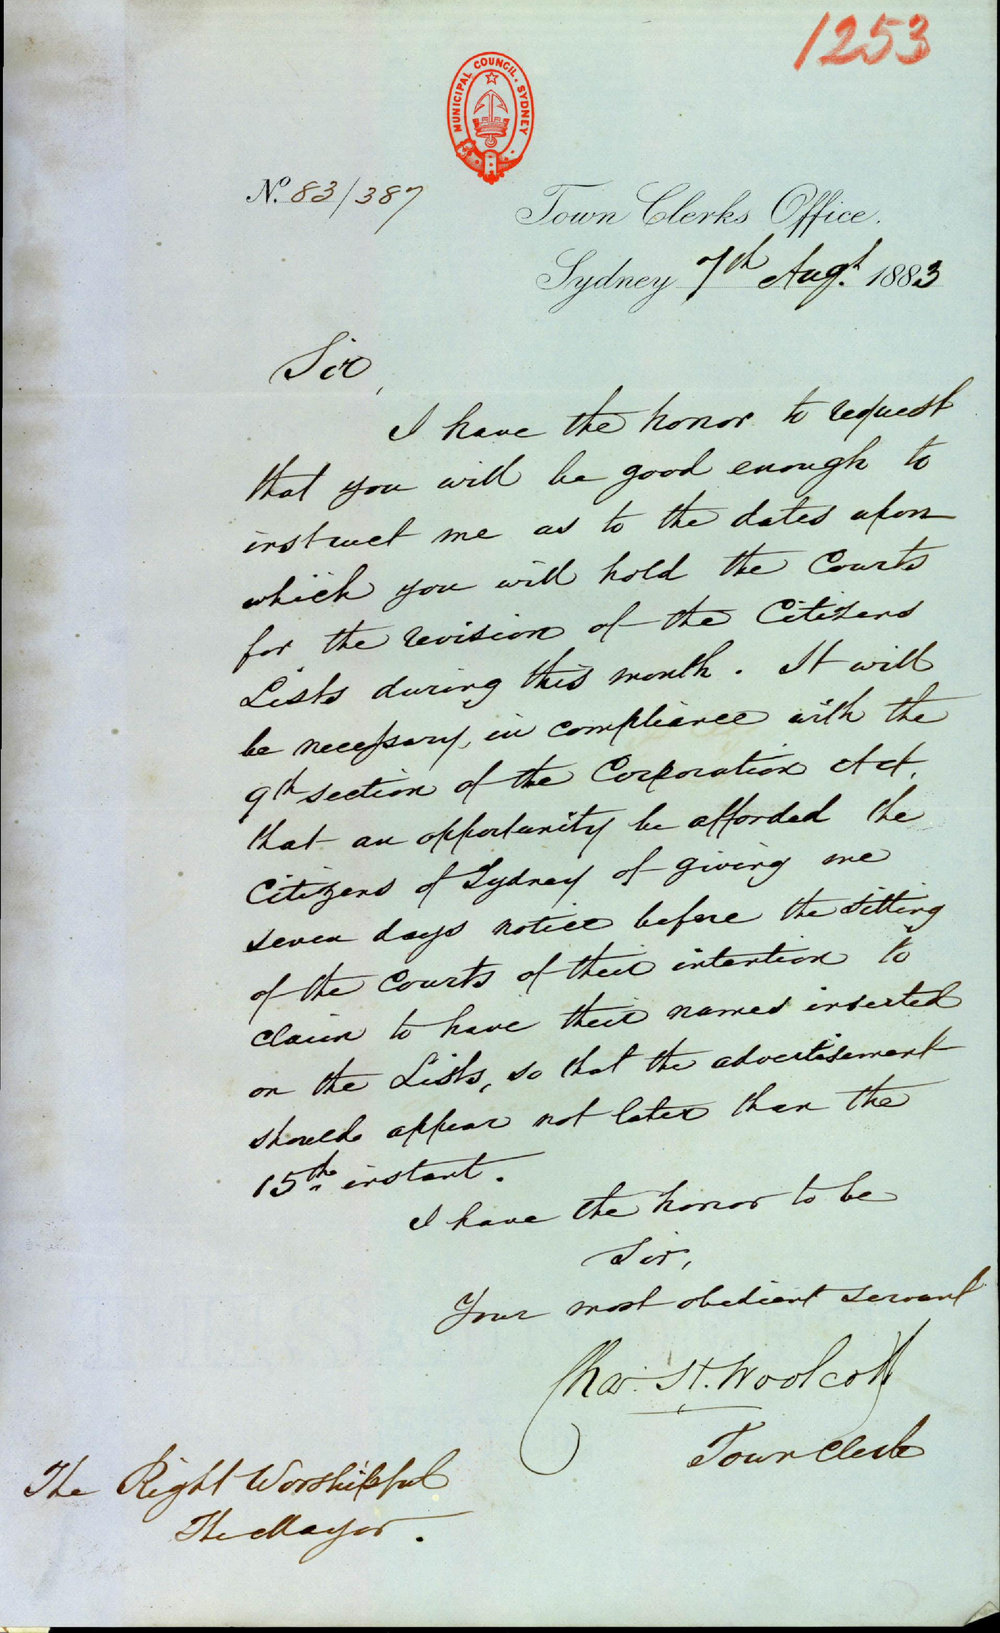 1253
MUNICIPAL COUNCIL, SYDNEY
No. 83/387
Town Clerks Office.
Sydney 7th Augt. 1883
Sir,
I have the honor to request
that you will be good enough to
instruct me as to the dates upon
which you will hold the Courts
for the revision of the Citizens
Lists during this month. It will
be necessary, in compliance with the
9th section of the Corporation Act,
that an opportunity be afforded the
Citizens of Sydney of giving me
seven days notice before the sitting
of the Courts of their intention to
claim to have their names inserted
on the Lists, so that the advertisement
should appear not later than the
15th instant.
I have the honor to be
Sir,
Your most obedient servant
Chas. H. Woolcott
Town Clerk
The Right Worshipful
The Mayor.